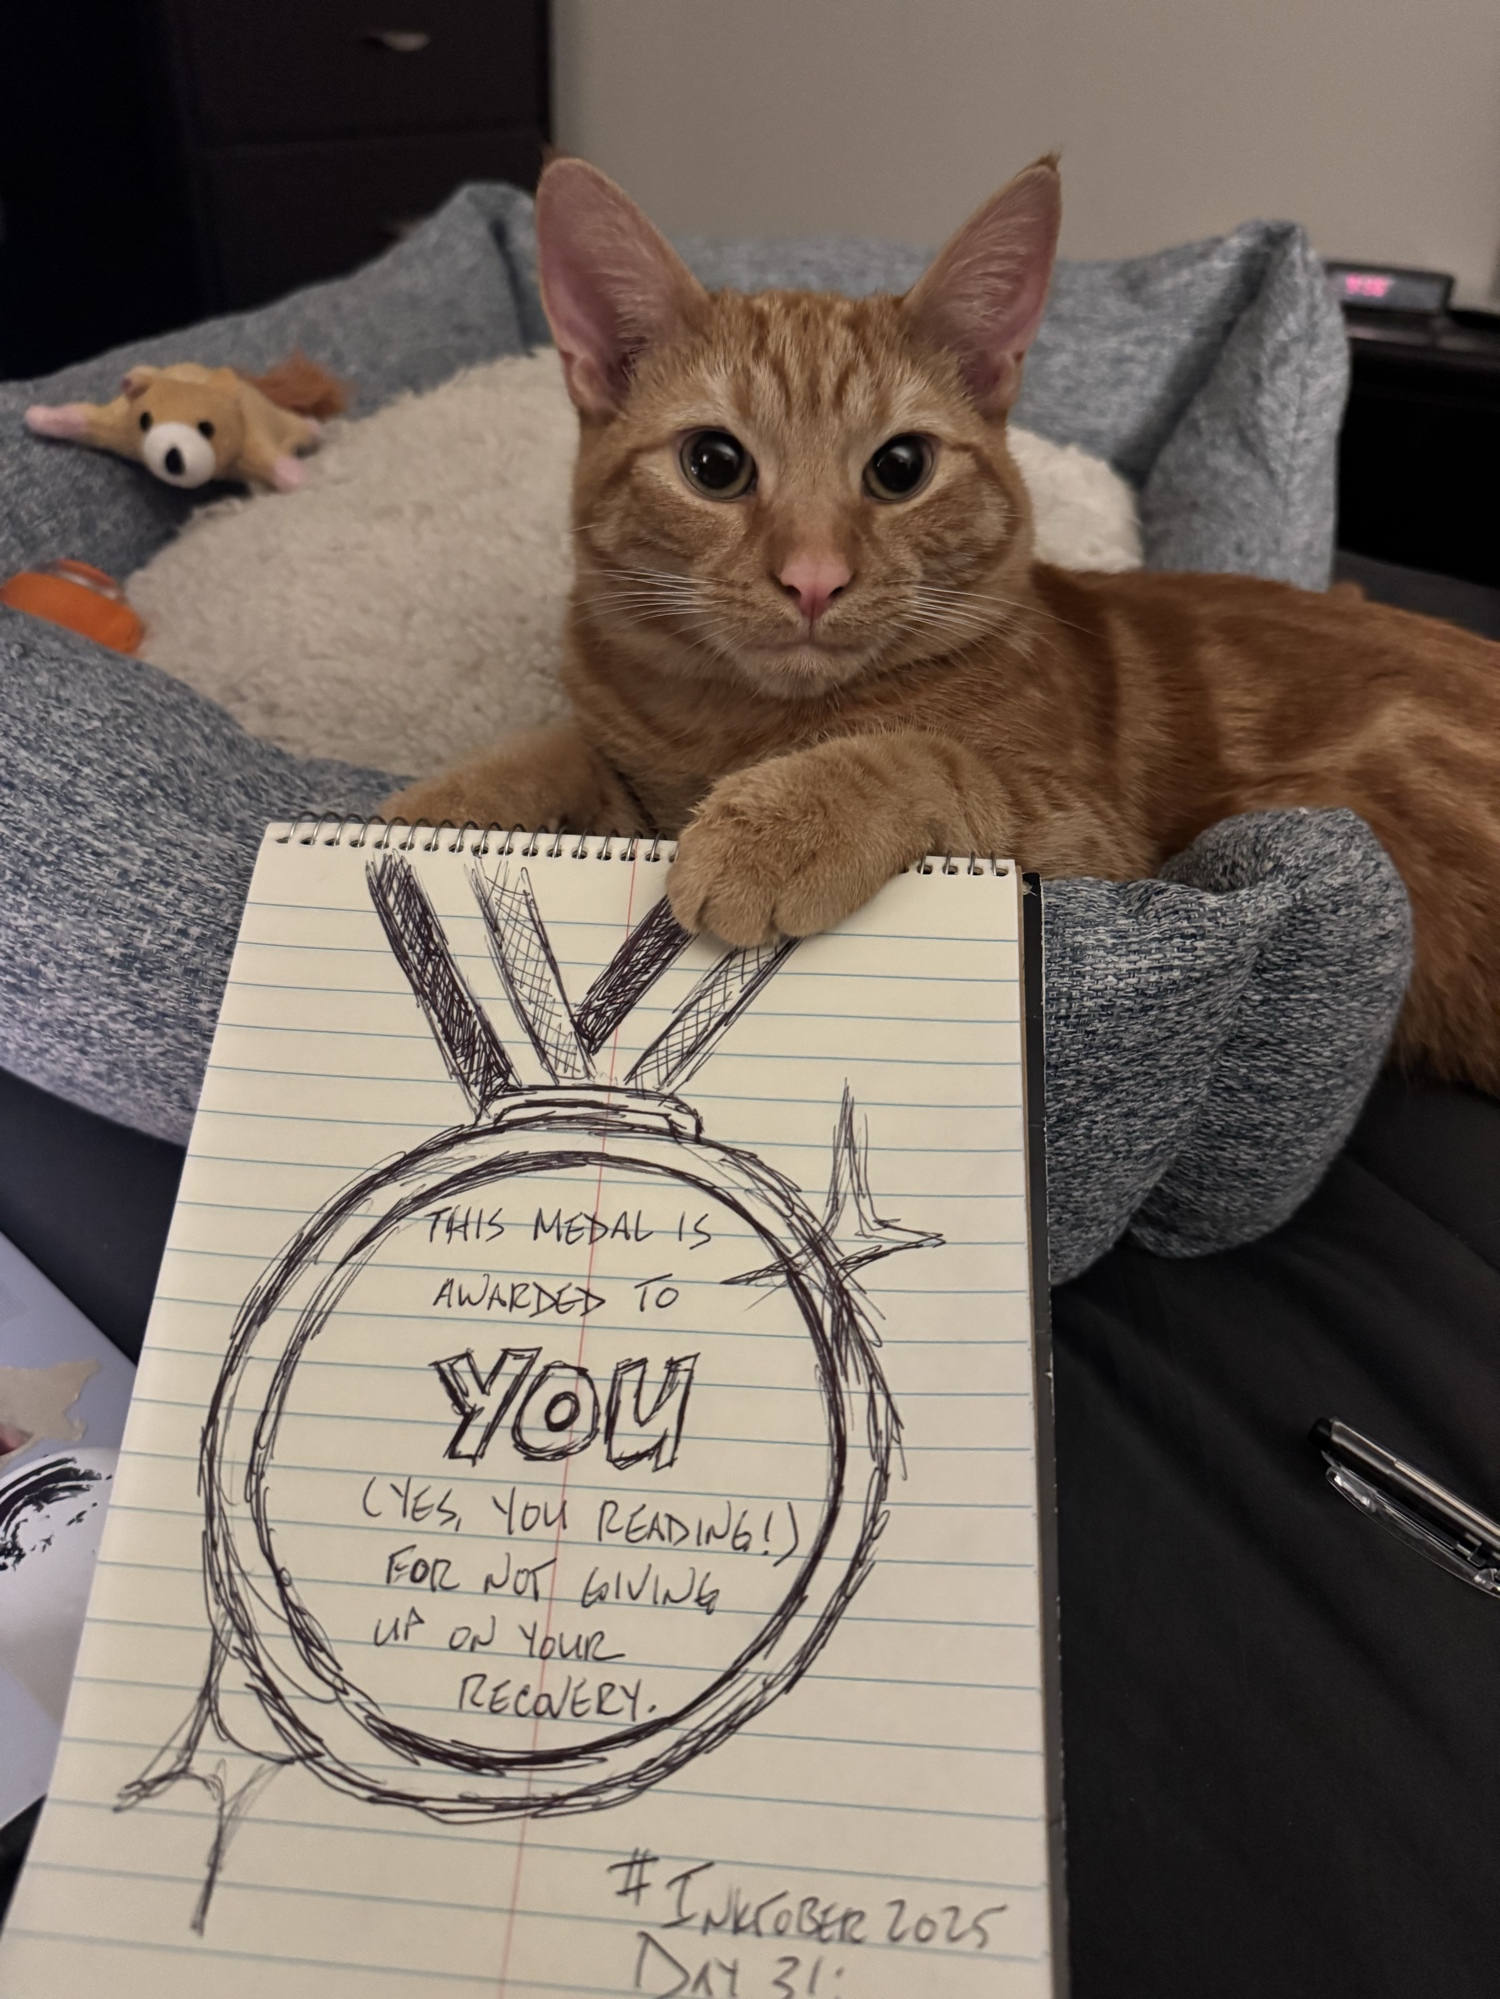 THIS MEDAL IS
AWARDED TO
YOU
(YES, YOU READING!)
FOR NOT GIVING
UP ON YOUR
RECOVERY.
#INKTOBER 2025
DAY 31: